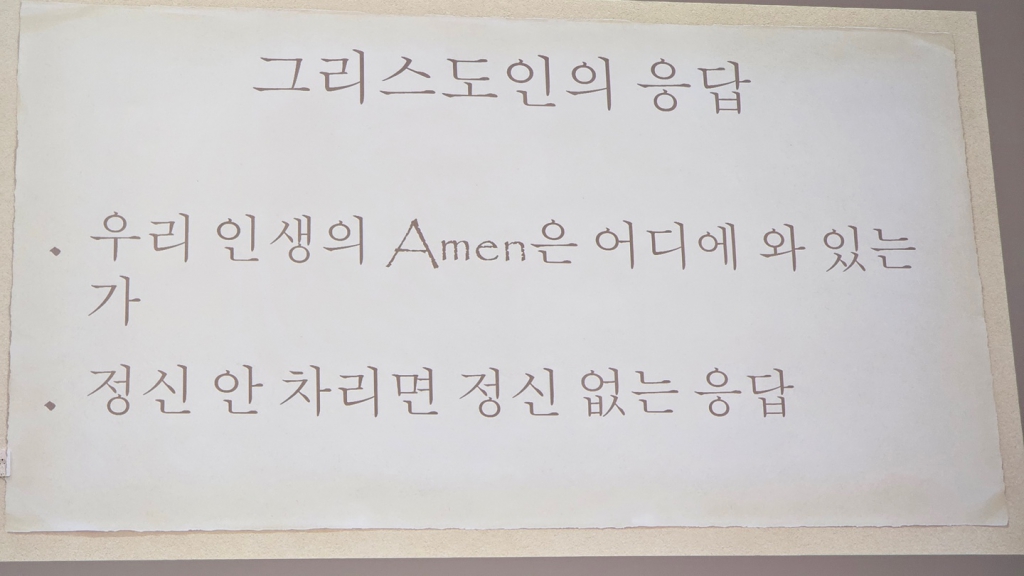 그리스도인의 응답
• 우리 인생의 Amen은 어디에 와 있는
가
• 정신 안 차리면 정신 없는 응답